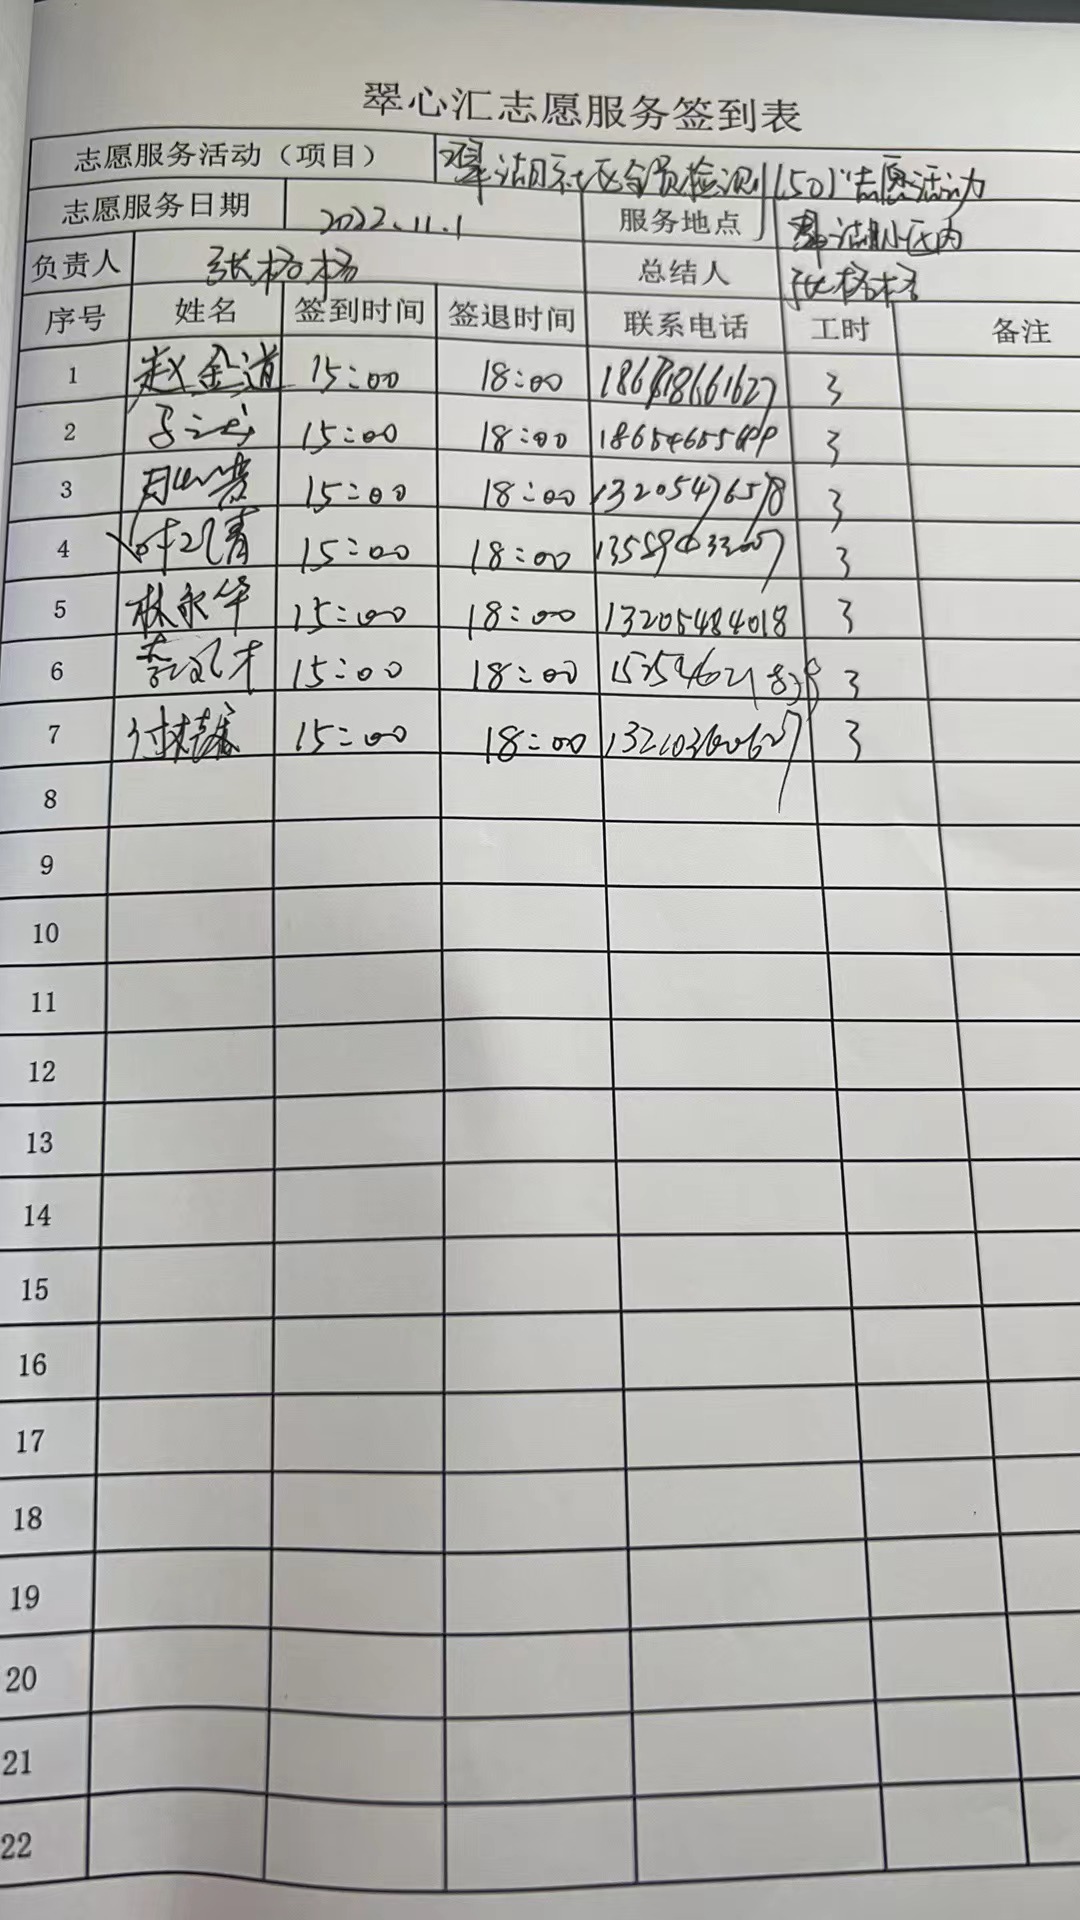 翠心汇志愿服务签到表
志愿服务活动（项目） 翠湖社区全员检测（50）志愿活动
志愿服务日期 2022.11.1 服务地点 翠湖小区内
负责人 张杨杨 总结人 张杨杨
序号 姓名 签到时间 签退时间 联系电话 工时 备注
1 赵金道 15:00 18:00 3
2 15:00 18:00 3
3 15:00 18:00 13205476578 3
4 15:00 18:00 3
5 林永华 15:00 18:00 13205484018 3
6 15:00 18:00 3
7 15:00 18:00 3
8
9
10
11
12
13
14
15
16
17
18
19
20
21
22